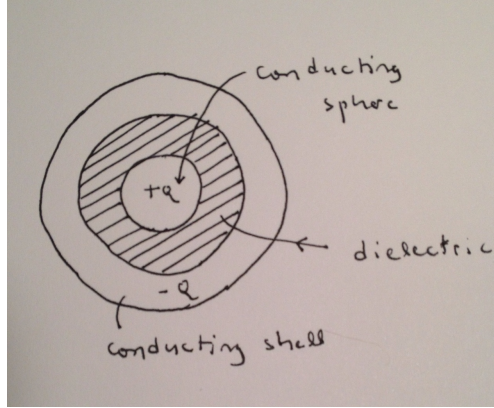 conducting
sphere
+Q
dielectric
-Q
conducting shell